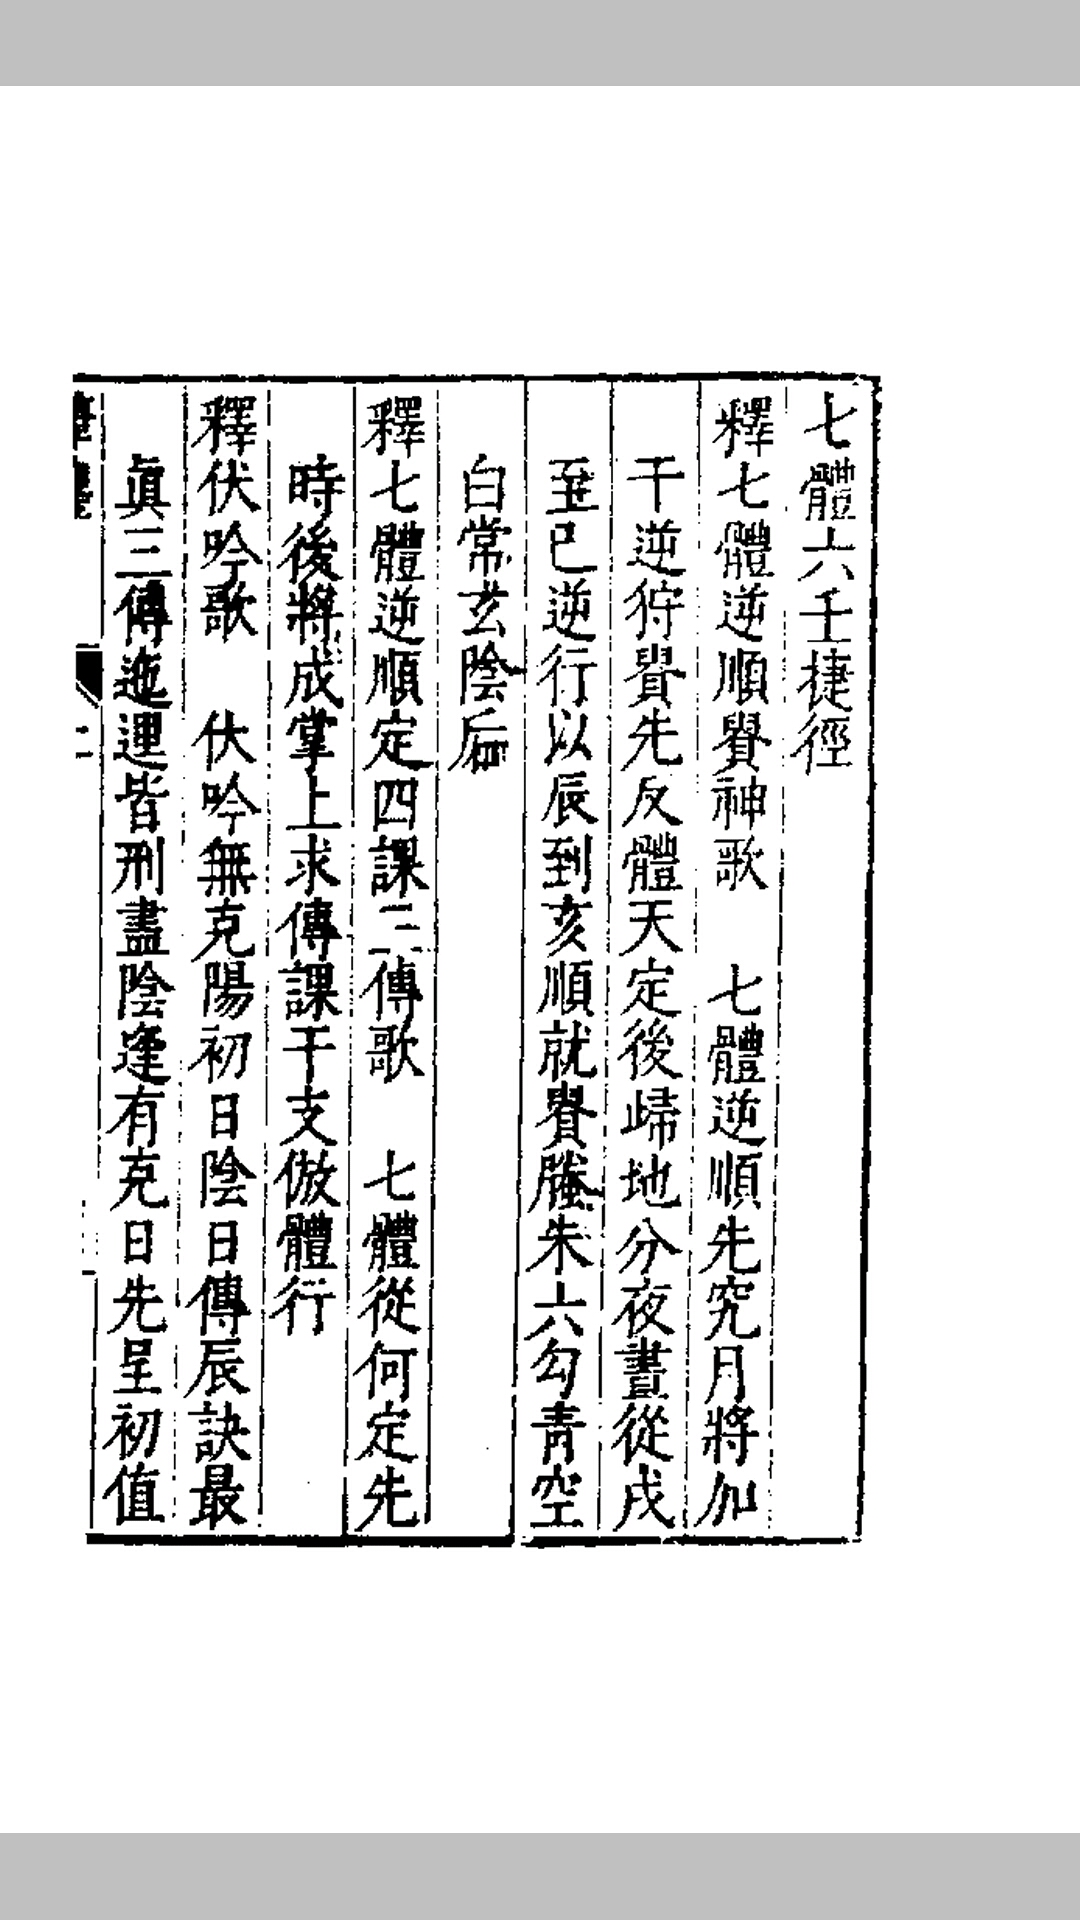 七體六壬捷徑
釋七體逆順貴神歌　七體逆順先究月將加
干逆狩貴先反體天定後歸地分夜晝從戌
至巳逆行以辰到亥順就貴螣朱六勾青空
白常玄陰后
釋七體逆順定四課三傳歌　七體從何定先
時後將成掌上求傳課干支倣體行
釋伏吟歌　伏吟無克陽初日陰日傳辰訣最
眞三傳迤邐皆刑盡陰逢有克日先呈初值